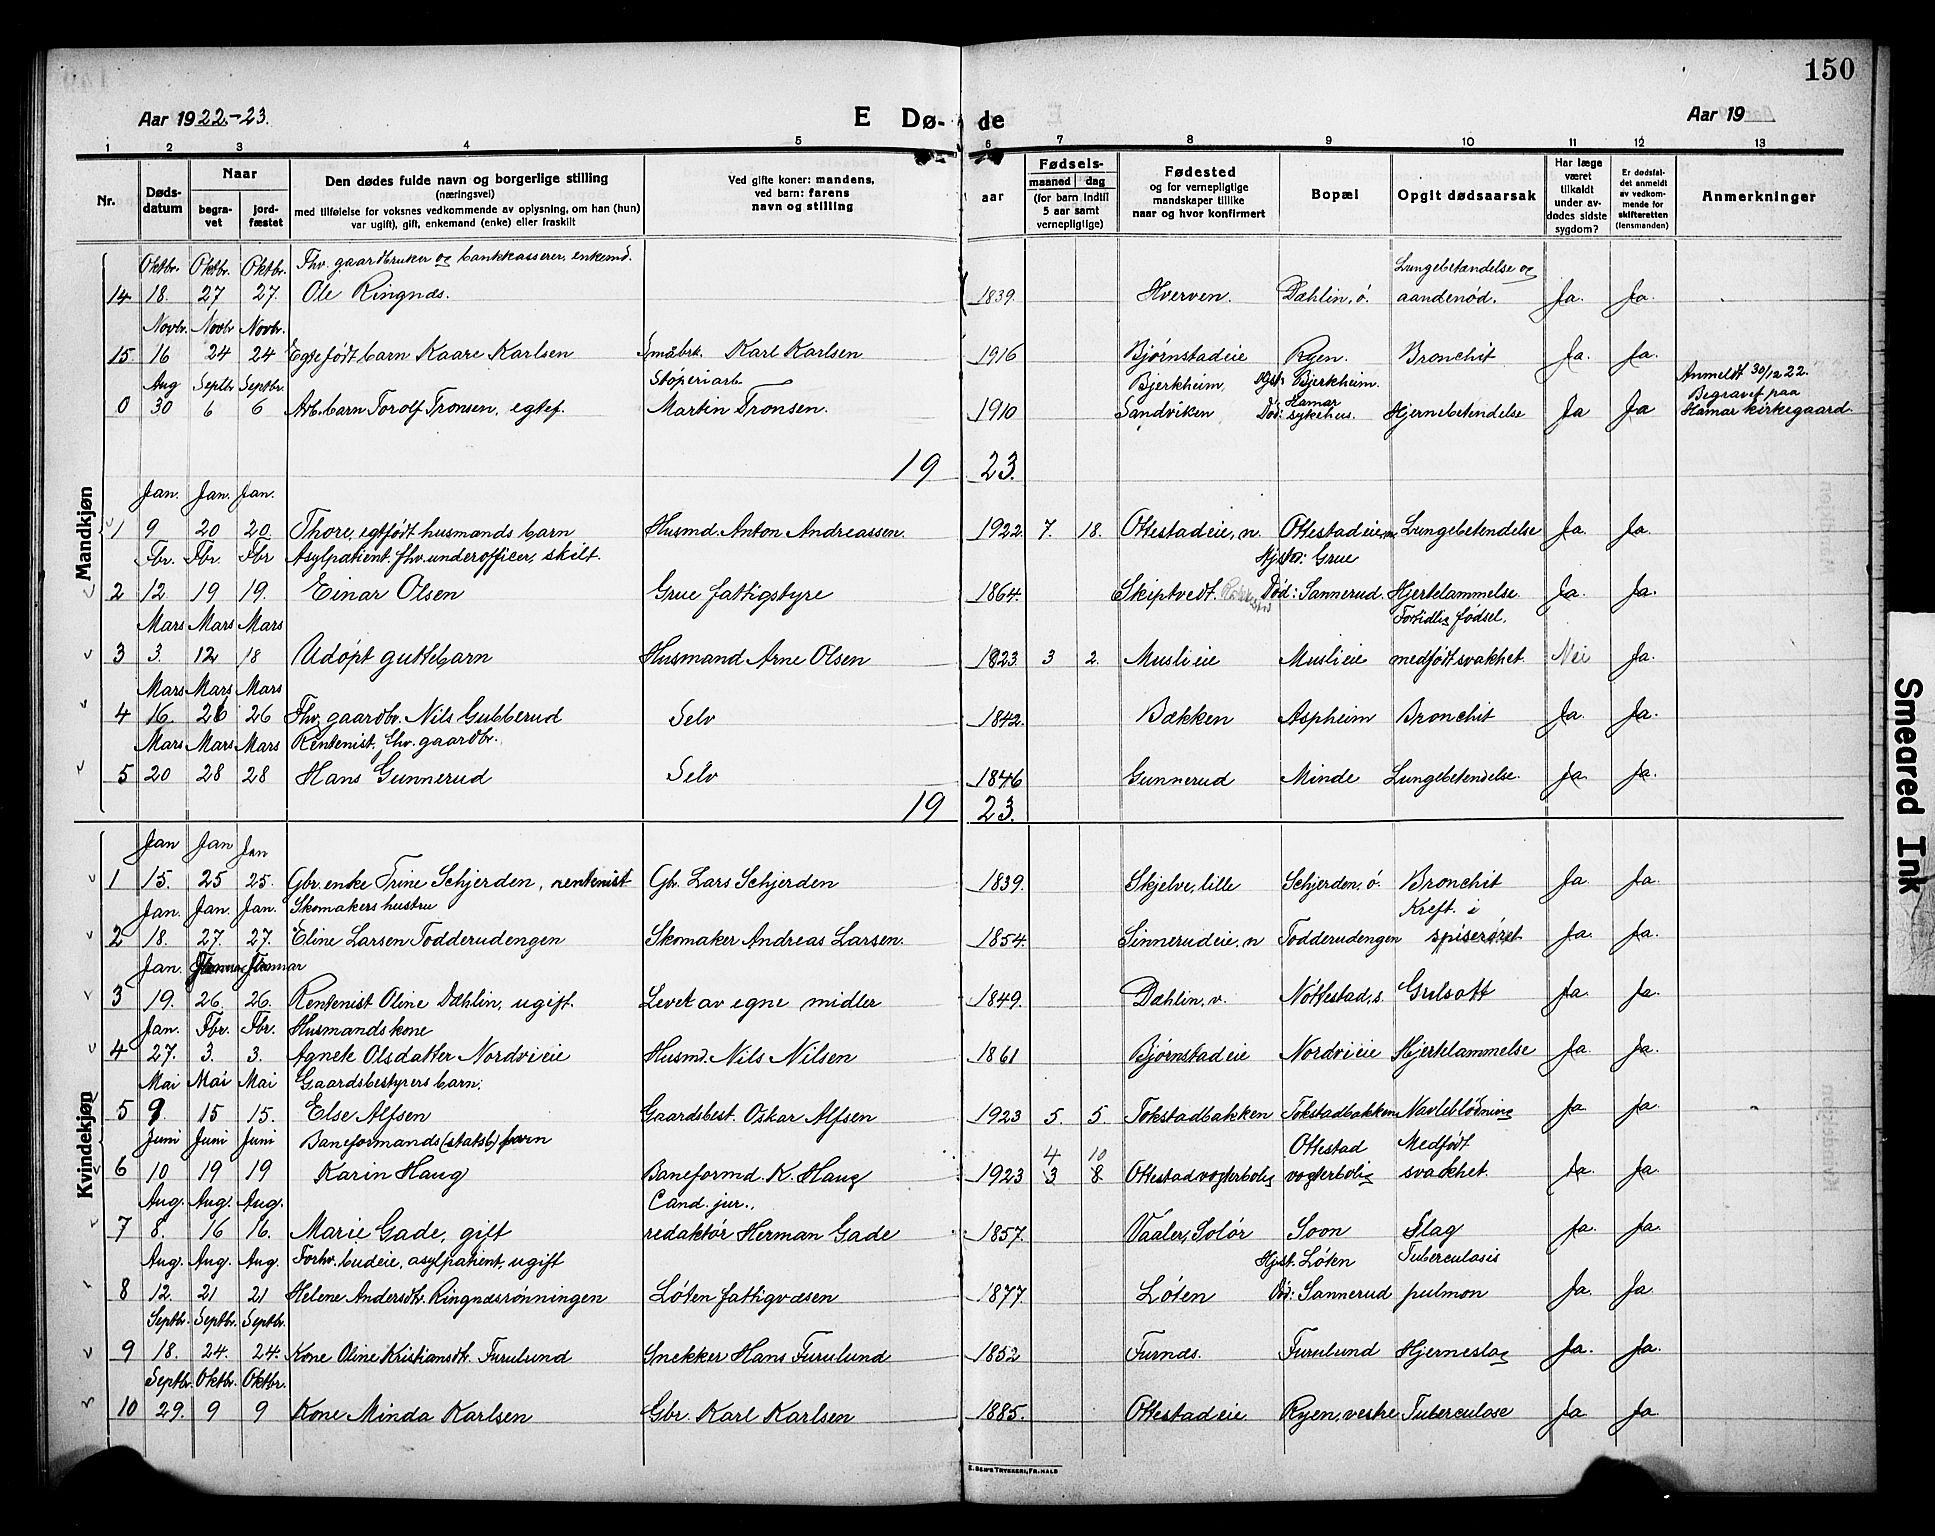 150
Aar 1922-23.
E Dø- de
Aar 19
1 2 3 4 5 6 7 8 9 10 11 12 13
Nr.
Døds-datum
Naar
begra-vet
jord-fæstet
Den dødes fulde navn og borgerlige stilling
(næringsvei)
med tilføielse for voksnes vedkommende av oplysning, om han (hun)
var ugift), gift, enkemand (enke) eller fraskilt
Ved gifte koner: mandens,
ved barn: farens
navn og stilling
aar
Fødsels-
maaned dag
(for barn indtil
5 aar samt
vernepligtige)
Fødested
og for vernepligtige
mandskaper tillike
naar og hvor konfirmert
Bopæl
Opgit dødsaarsak
Har læge
været
tilkaldt
under av-
dødes sidste
sygdom?
Er dødsfal-
det anmeldt
av vedkom-
mende for
skifteretten
(lensmanden)
Anmerkninger
Mandkjøn
Oktbr. Oktbr. Oktbr. Fhv. gaardbruker og bankkasserer, enkemd. Lungebetændelse og
14 18. 27 27. Ole Ringnæs. 1839. Hverven. Dæhlin, ø. aandenød. Ja. Ja.
Novbr. Novbr Novbr.
15. 16 24 24 Egtefødt barn Kaare Karlsen Småbrk. Karl Karlsen 1916 Bjørnstadeie Ryen. Bronchit Ja. Ja.
Aug Septbr. Septbr. Støperiarb. Bjerkheim, Hjst: Bjerkheim. Anmeldt 30/12 22.
0 30 6 6 Arb. barn Torolf Tronsen, egtef. Martin Tronsen. 1910 Sandviken Død: Hamar sykehus. Hjernebetendelse Ja Ja Begravet paa
Hamar kirkegaard.
19 23.
Jan. Jan. Jan.
1 9 20 20. Thore, egtfødt husmands barn Husmd. Anton Andreassen. 1922. 7. 18. Ottestadeie, n. Ottestadeie, n. Lungebetendelse Ja. Ja.
Fbr. Fbr. Fbr Asylpatient. fhv. underofficer, skilt. Hjsted: Grue
2 12. 19 19. Einar Olsen Grue fattigstyre 1864. Skiptvedt. Død: Sannerud. Hjertelammelse. Ja. Ja.
Mars Mars Mars Fortidlig fødsel.
3 3. 12 18 Udøpt guttebarn Husmand Arne Olsen 1923. 3 2. Muslieie Muslieie medfødt svakhet. Nei Ja.
Mars Mars Mars
4 16. 26 26 Fhv. gaardbr. Nils Gubberud Selv 1842. Bækken Aspheim Bronchit Ja. Ja.
Mars Mars Mars Rentenist, fhv. gaardbr.
5 20 28 28 Hans Gunnerud Selv 1846 Gunnerud Minde Lungebetendelse. Ja. Ja.
19 23.
Kvindekjøn
Jan Jan Jan
1 15. 25 25. Gbr. enke Trine Schjerden, rentenist Gbr. Lars Schjerden 1839. Skjelve, lille Schjerden, ø. Bronchit Ja Ja.
Jan. Jan. Jan. Skomakers hustru Kreft. i
2 18. 27. 27. Eline Larsen Todderudengen Skomaker Andreas Larsen. 1854. Sinnerudeie, n Todderudengen spiserøret Ja. Ja.
Jan.
3 19. 26. 26. Rentenist Oline Dæhlin, ugift. Levet av egne midler 1849. Dæhlin, v. Nøttestad, s. Gulsott Ja. Ja.
Jan. Fbr. Fbr. Husmandskone
4 27. 3. 3. Agnete Olsdatter Nordvieie Husmd. Nils Nilsen 1861 Bjørnstadeie Nordvieie Hjertelammelse Ja. Ja.
Mai Mai Mai Gaardsbestyrers barn.
5 9. 15 15. Else Alfsen Gaardsbest. Oskar Alfsen 1923 5. 5. Tokstadbakken Tokstadbakken Navleblødning Ja. Ja.
Juni Juni Juni Baneformands (statsb) barn 4 10 Ottestad Medfødt
6 10 19 19 Karin Haug Baneformd. K. Haug 1923 3 8 Ottestad vogterbolig vogterbolig svakhet. Ja. Ja.
Aug. Aug. Aug. Cand. jur.,
7 8. 16 16. Marie Gade, gift redaktør Herman Gade 1857. Vaaler, Solør Soon Slag Ja. Ja.
Aug. Aug. Aug. Forhv. budeie, asylpatient, ugift Hjst. Løten Tuberculosis
8 12. 21 21 Helene Andersdtr. Ringnæsrønningen Løten fattigvæsen 1877. Løten Død: Sannerud pulmon Ja. Ja.
Septbr. Septbr. Septbr.
9 18. 24. 24. Kone Oline Kristiansdt. Furulund Snekker Hans Furulund 1852 Furnæs. Furulund Hjerneslag Ja. Ja.
Septbr. Oktbr. Oktbr.
10 29. 9 9 Kone Minda Karlsen Gbr. Karl Karlsen 1885. Ottestadeie Ryen, vestre Tuberculose Ja. Ja.
E. SEM'S TRYKKERI, FR.HALD
Smeared Ink